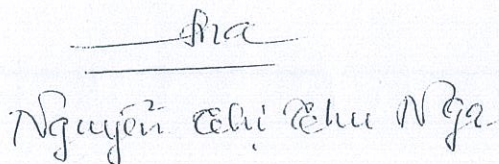 Nguyễn Thị Thu Nga